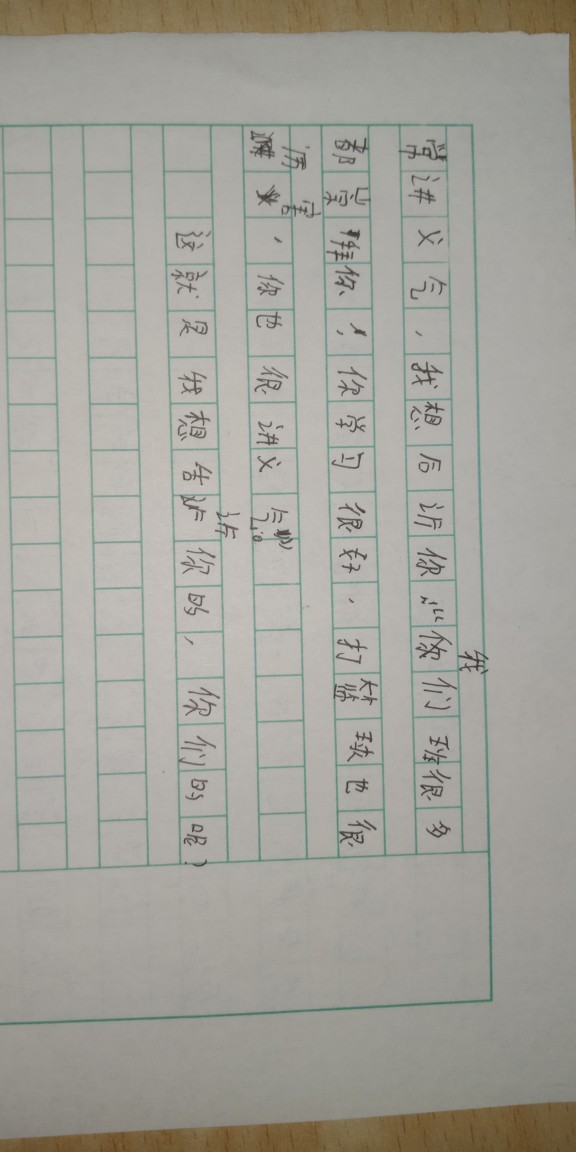 我
常讲义气,我想后诉你:“你们班很多
都崇你,你学习很好,打篮球也很
厉害
,你也很讲义气。”
诉
这就是我想告诉你的,你们的呢?